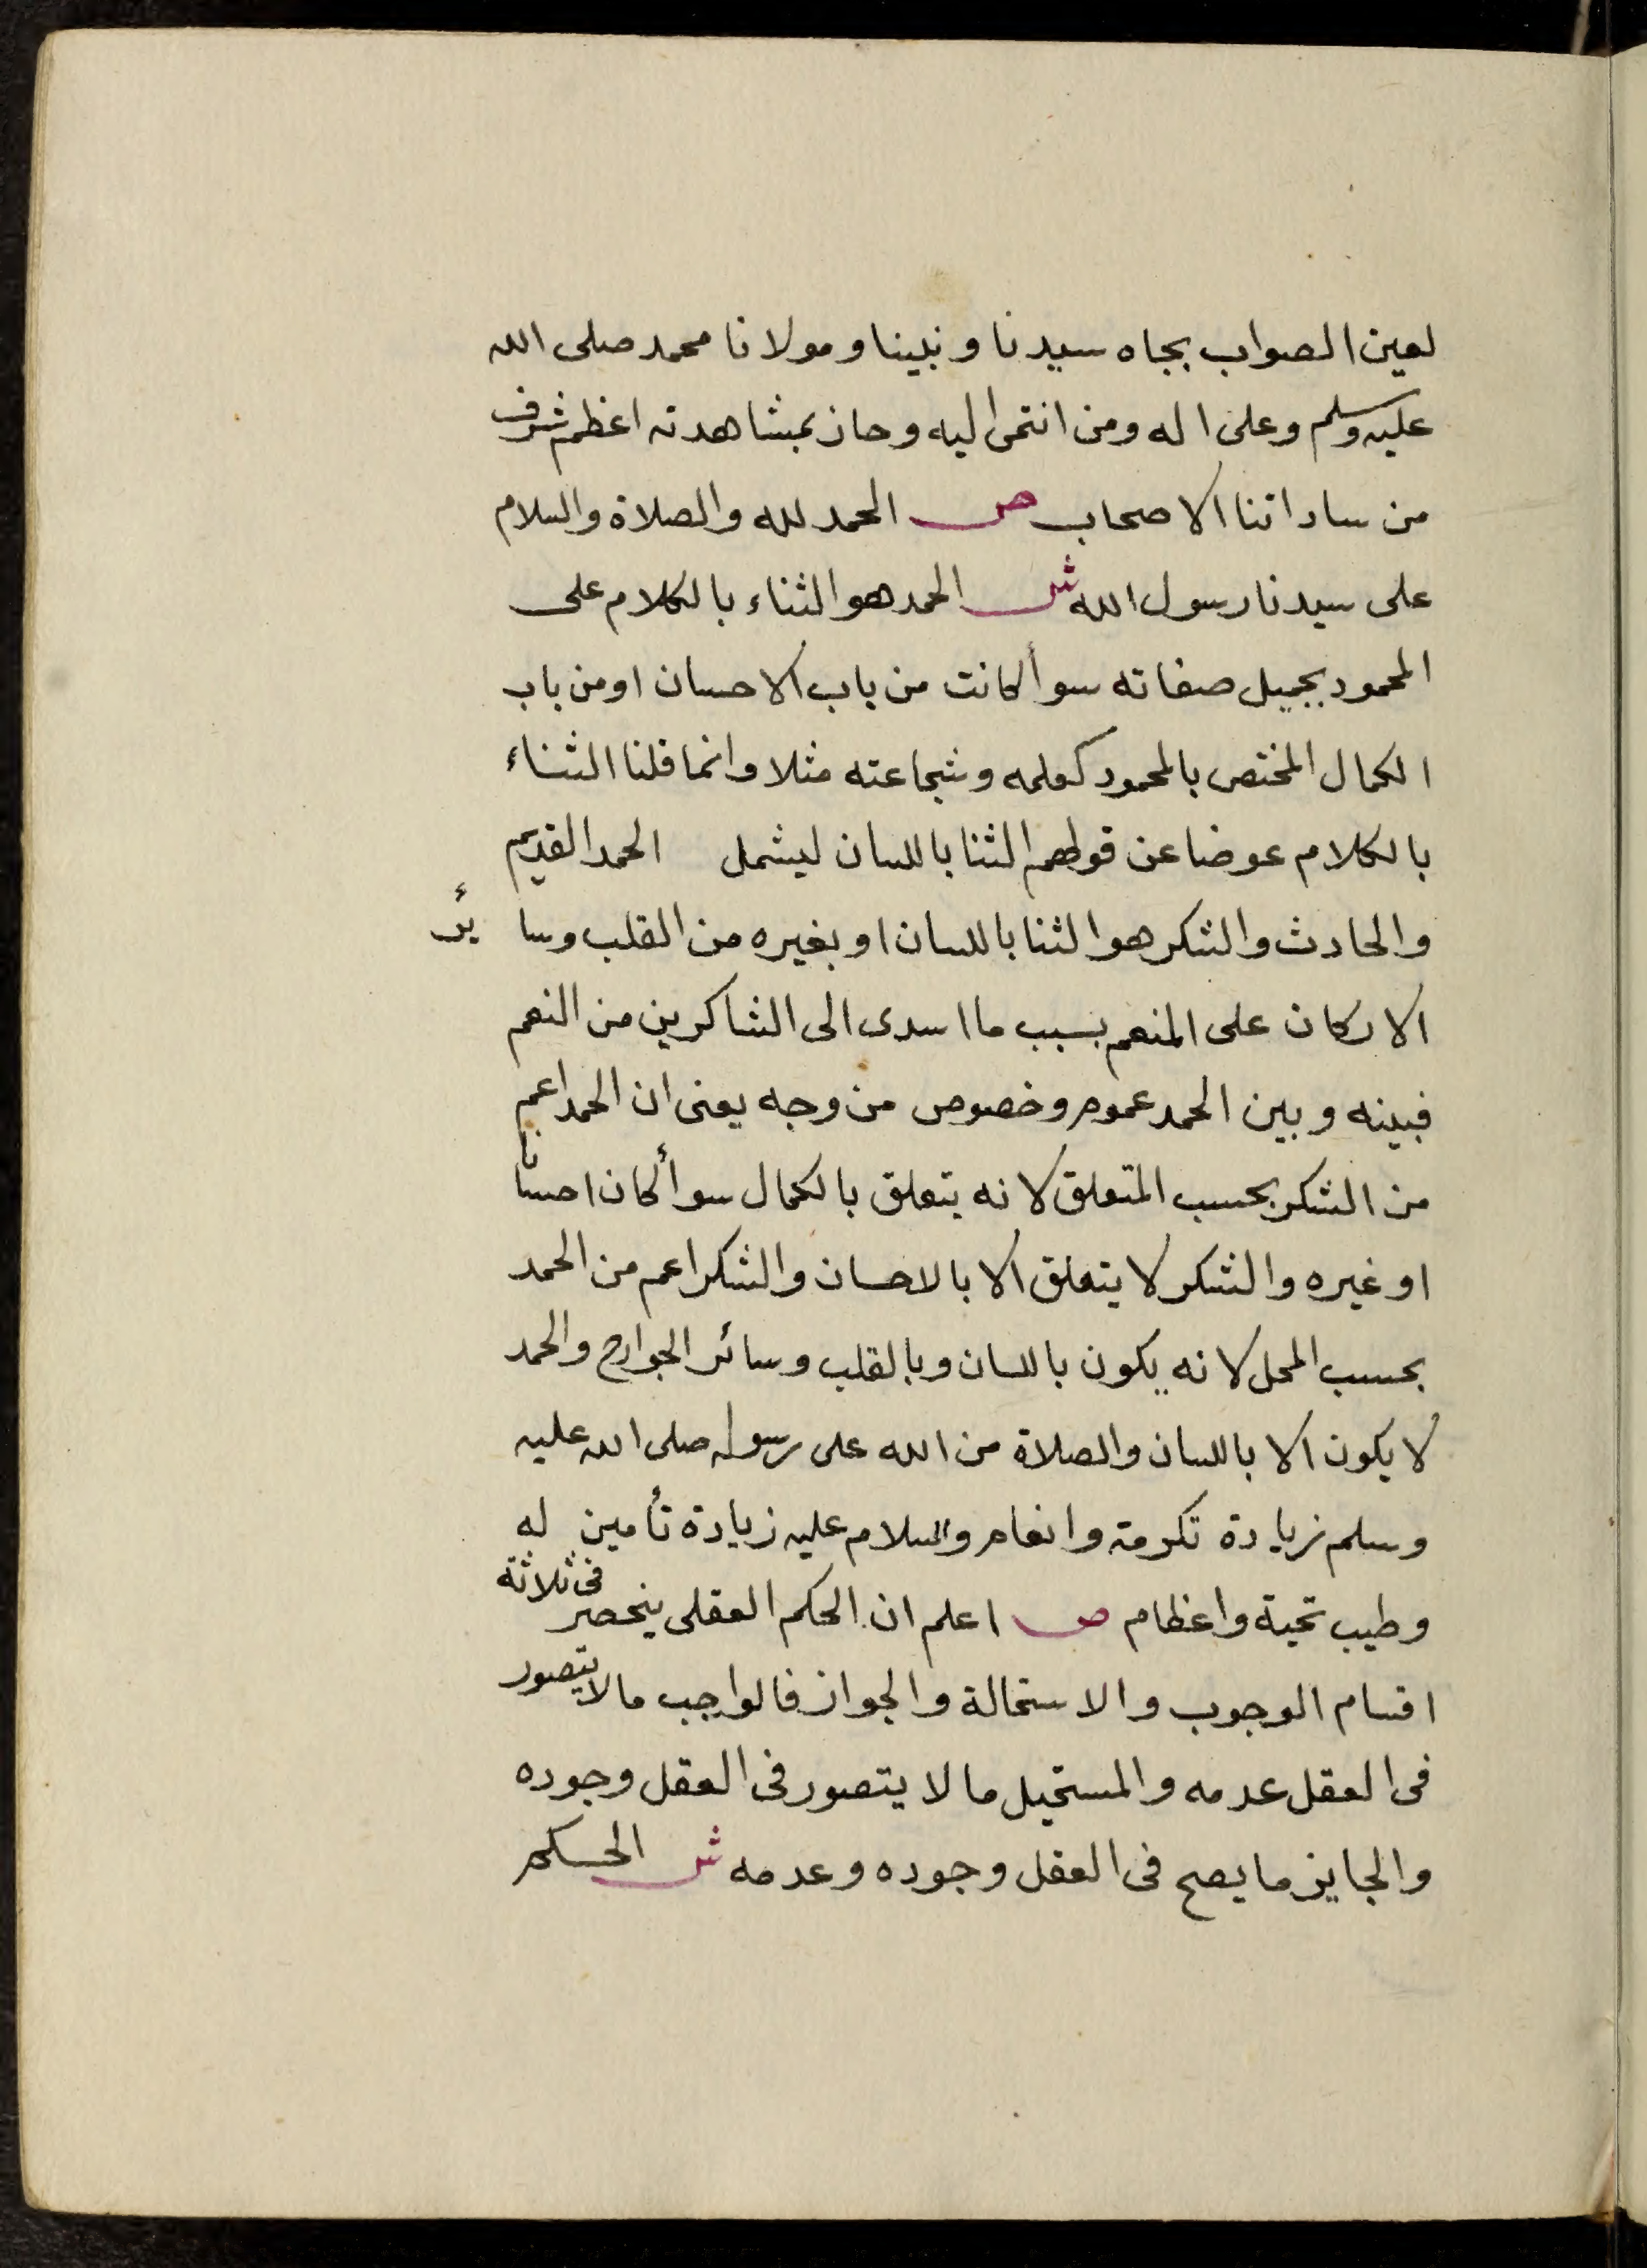 لعين الصواب بجاه سيدنا ونبينا ومولانا محمد صلى الله
عليه وسلم وعلى اله ومن انتمى اليه وحاز بمشاهدته اعظم شرف
من ساداتنا الاصحاب ص الحمد لله والصلاة والسلام
على سيدنا رسول الله ش الحمد هو الثناء بالكلام على
المحمود بجميل صفاته سوأ كانت من باب الاحسان او من باب
الكمال المختص بالمحمود كعلمه وشجاعته مثلا وانما قلنا الثناء
بالكلام عوضا عن قولهم الثنا باللسان ليشمل الحمد القديم
والحادث والشكر هو الثنا باللسان او بغيره من القلب وسائر
الاركان على المنعم بسبب ما اسدى الى الشاكرين من النعم
فبينه وبين الحمد عموم وخصوص من وجه يعنى ان الحمد اعم
من الشكر بحسب المتعلق لانه يتعلق بالكمال سوأ كان احسانا
او غيره والشكر لا يتعلق الا بالاحسان والشكر اعم من الحمد
بحسب المحل لانه يكون باللسان وبالقلب وسائر الجوارح والحمد
لا يكون الا باللسان والصلاة من الله على رسوله صلى الله عليه
وسلم زيادة تكرمة وانعام والسلام عليه زيادة تأمين له
وطيب تحية واعظام ص اعلم ان الحكم العقلى ينحصر فى ثلاثة
اقسام الوجوب والاستحالة والجواز فالواجب ما لا يتصور
فى العقل عدمه والمستحيل ما لا يتصور فى العقل وجوده
والجايز ما يصح فى العقل وجوده وعدمه ش الحكم